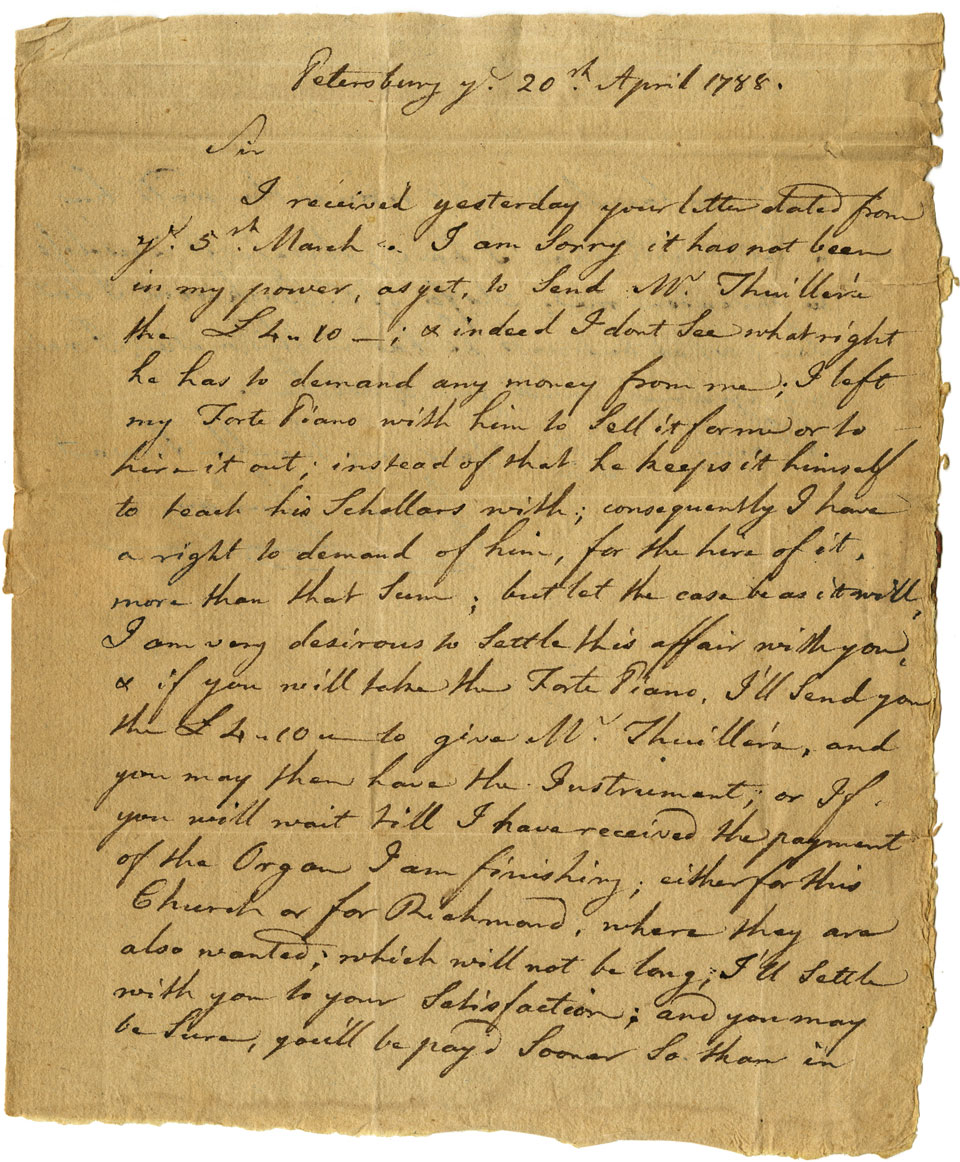 Petersburg ye. 20th. April 1788.
Sir
I received yesterday your letter dated from
ye. 5th. March .. I am Sorry it has not been
in my power, as yet, to Send Mr Thuillera
the £ 4..10 —; & indeed I dont See what right
he has to demand any money from me; I left
my Forte Piano with him to Sell it for me or to
hire it out; instead of that he keeps it himself
to teach his Schollars with; consequently I have
a right to demand of him, for the hire of it,
more than that Sum; but let the case be as it will,
I am very desirous to Settle this affair with you,
& if you will take the Forte Piano, I'll Send you
the £4..10.. — to give Mr. Thuillera, and
you may then have the Instrument; or If
you will wait till I have received the payment
of the Organ I am finishing; either for this
Church or for Richmond, where they are
also wanted; which will not be long; I'll Settle
with you to your Satisfaction; and you may
be Sure, you'll be pay'd Sooner So than in